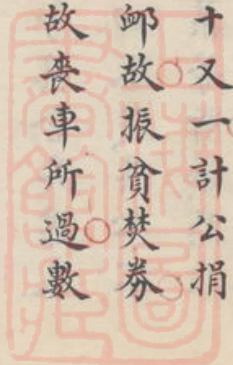 十又一計公捐
邮故振貧焚券
故喪車所過數